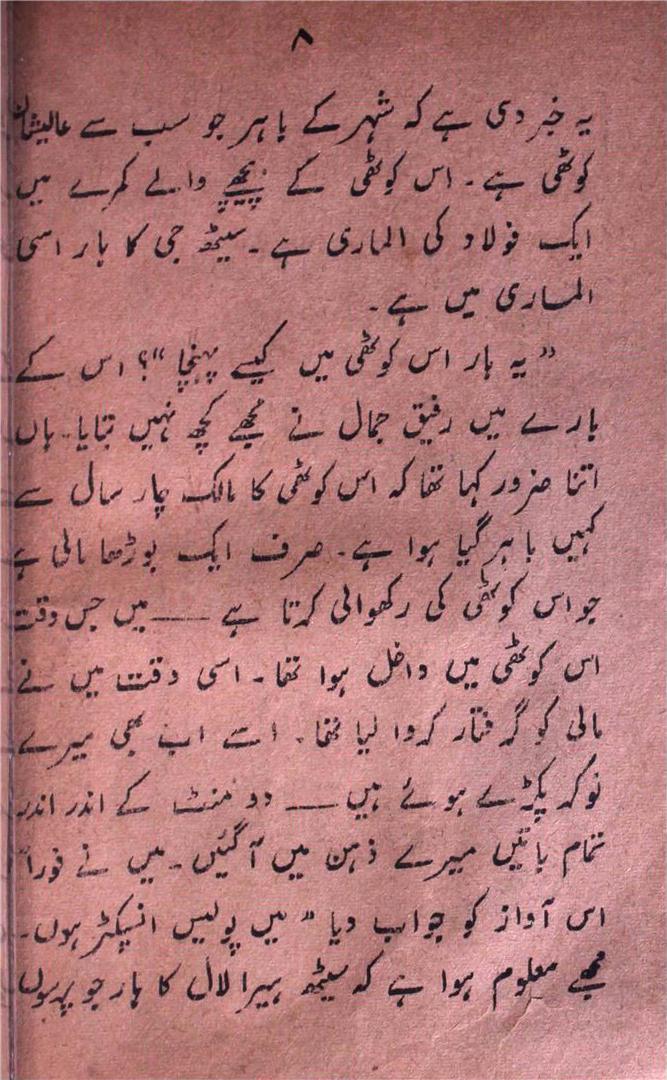 ۸
یہ خبر دی ہے کہ شہر کے باہر جو سب سے عالیشان
کوٹھی ہے۔ اس کوٹھی کے پیچھے والے کمرے میں
ایک فولاد کی الماری ہے۔ سیٹھ جی کا ہار اسی
الماری میں ہے۔
”یہ ہار اس کوٹھی میں کیسے پہنچا“؟ اس کے
بارے میں رفیق جمال نے مجھے کچھ نہیں بتایا۔ ہاں
اتنا ضرور کہا تھا کہ اس کوٹھی کا مالک چار سال سے
کہیں باہر گیا ہوا ہے۔ صرف ایک بوڑھا مالی ہے
جو اس کوٹھی کی رکھوالی کرتا ہے —— میں جس وقت
اس کوٹھی میں داخل ہوا تھا۔ اسی وقت میں نے
مالی کو گرفتار کروا لیا تھا۔ اسے اب بھی میرے
نوکر پکڑے ہوئے ہیں —— دو منٹ کے اندر اندر
تمام باتیں میرے ذہن میں آ گئیں۔ میں نے فوراً
اس آواز کو جواب دیا ”میں پولیس انسپکٹر ہوں۔
مجھے معلوم ہوا ہے کہ سیٹھ ہیرا لال کا ہار جو پرسوں